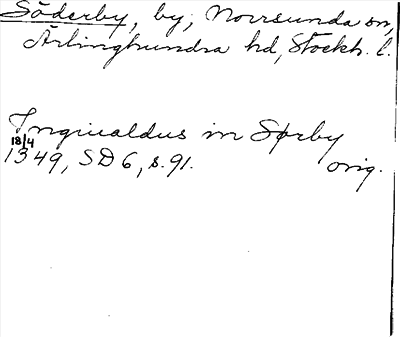 Söderby, by, Norrsunda sn,
Ärlinghundra hd, Stockh. l.
Ingiualdus in Sørby
18/4
1349, SD 6, s. 91. orig.